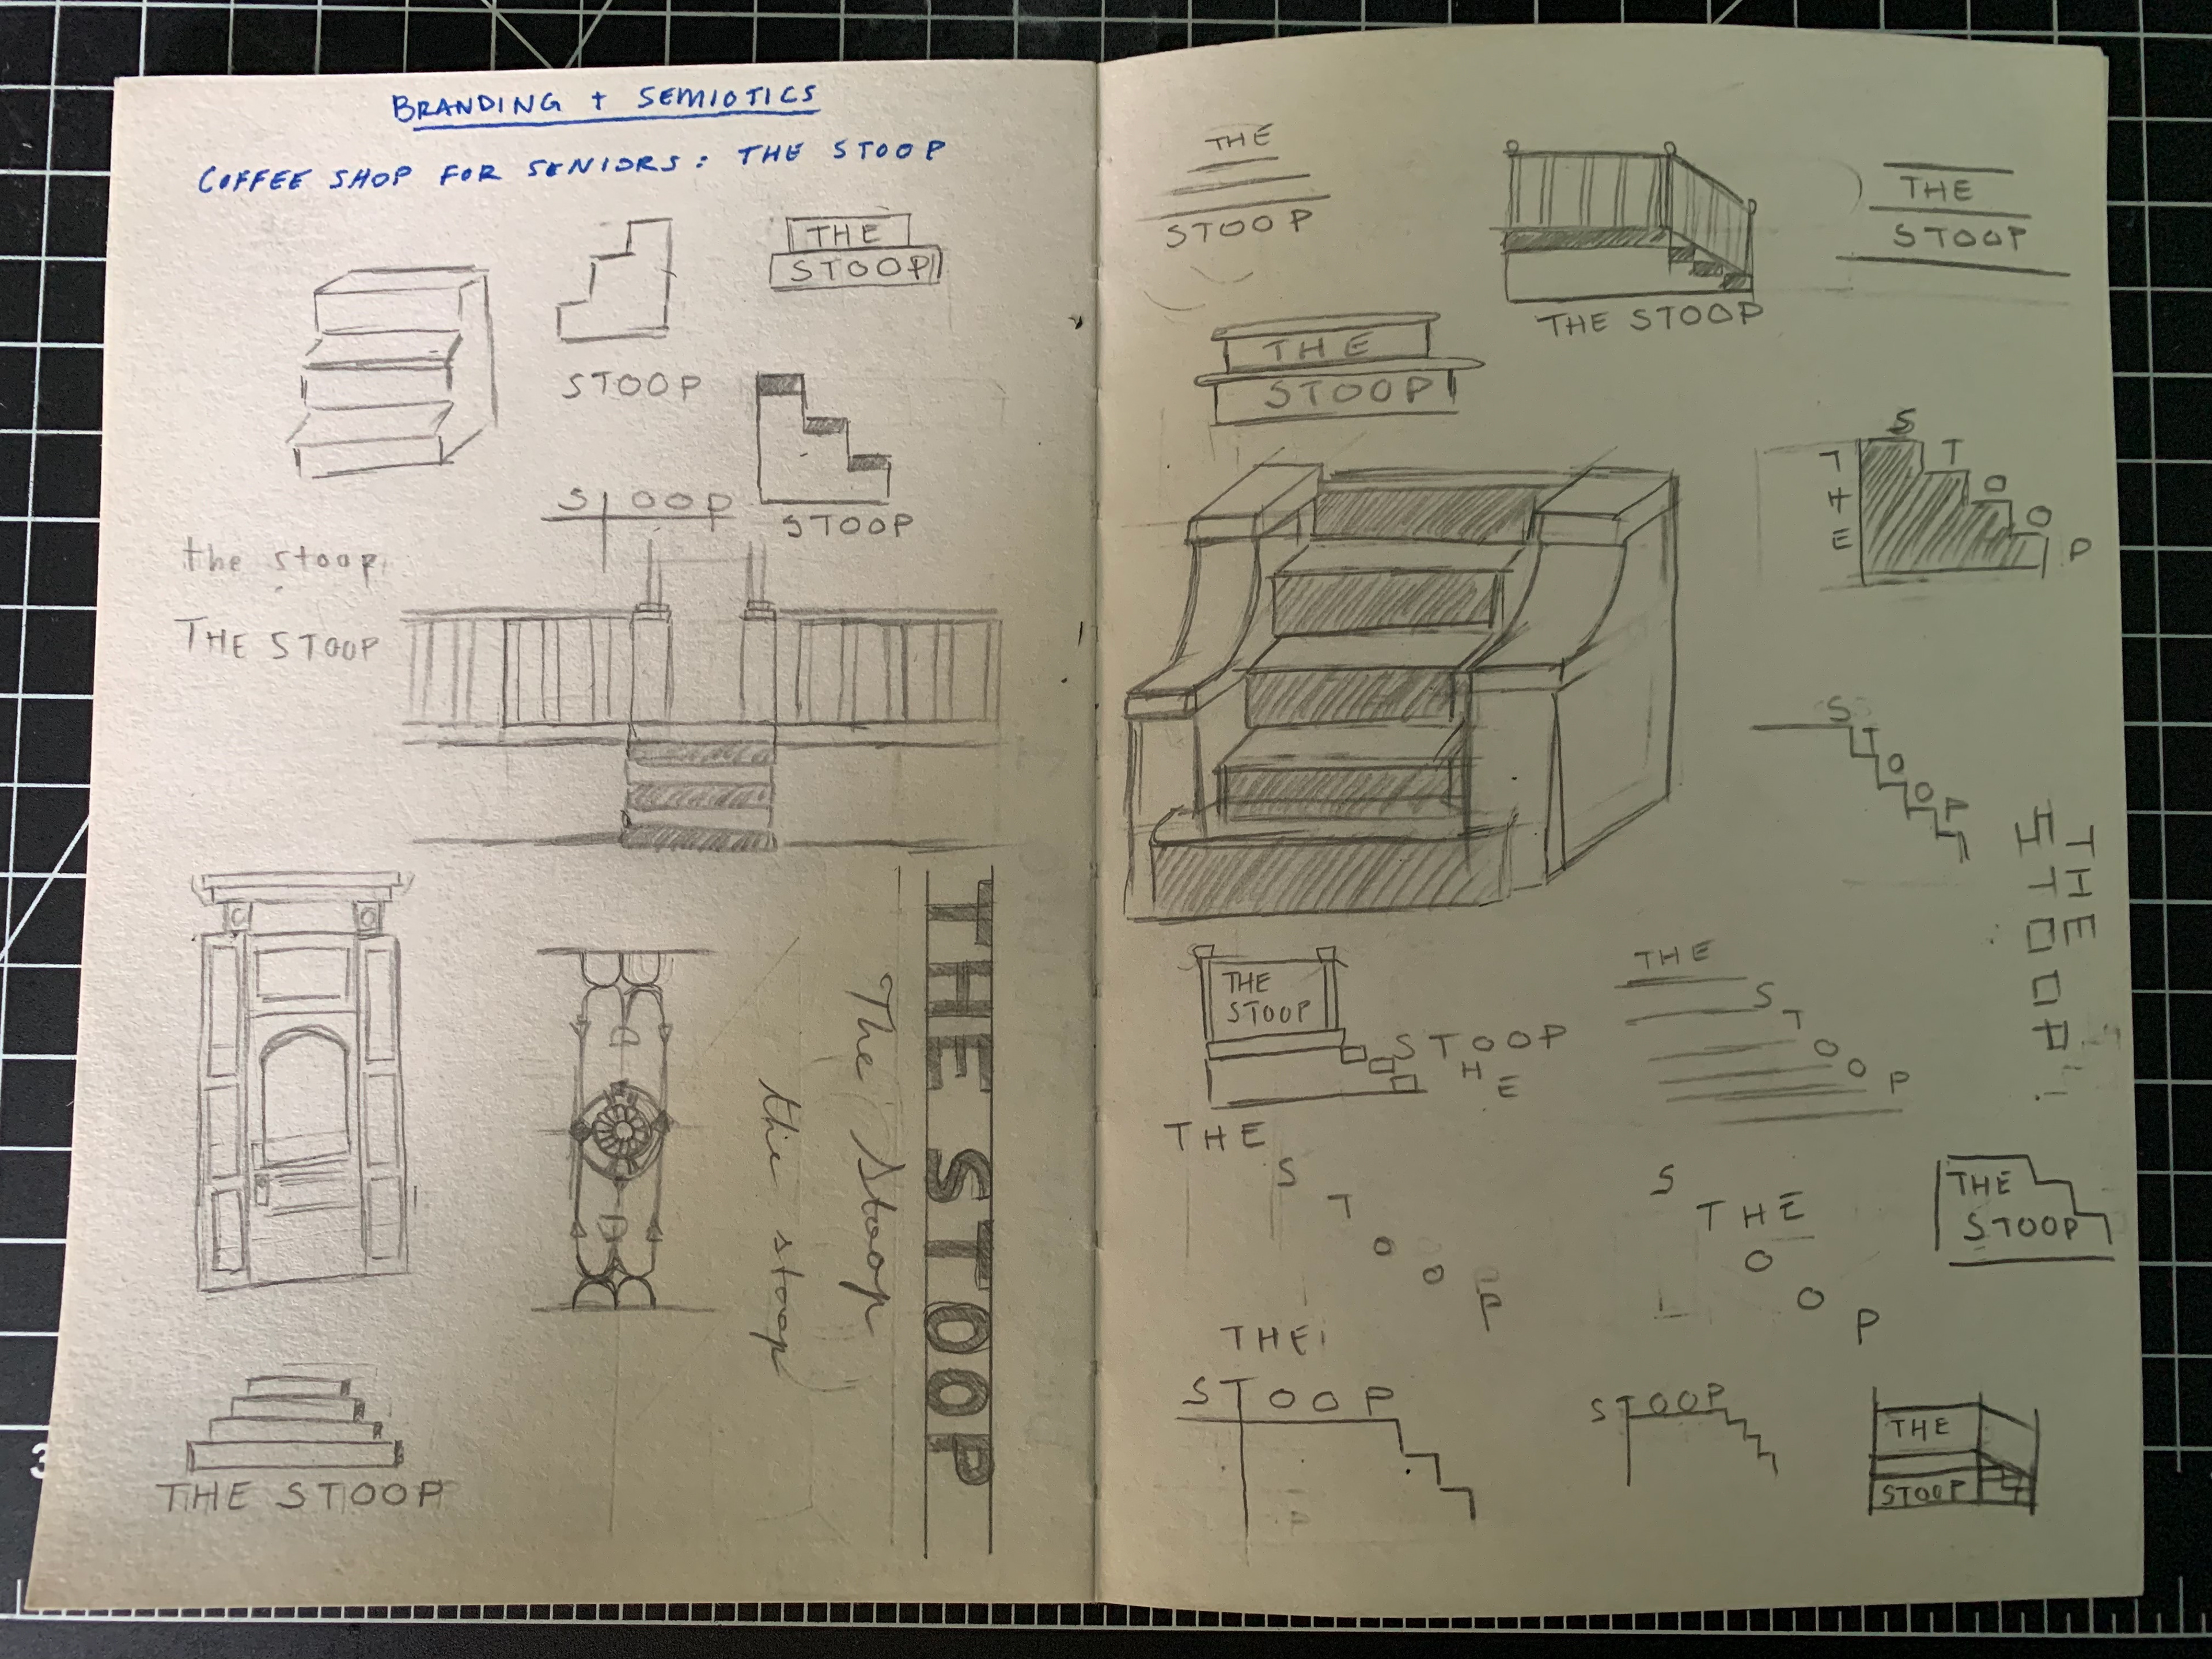 BRANDING + SEMIOTICS
COFFEE SHOP FOR SENIORS: THE STOOP
THE
STOOP
STOOP
STOOP
STOOP
the stoop
THE STOOP
THE STOOP
The Stoop
the stoop
THE STOOP
THE
STOOP
THE STOOP
THE
STOOP
THE
STOOP
THE
STOOP
STOOP
THE
STOOP
THE
STOOP
STOOP
H
E
THE
STOOP
THE
STOOP
S
THE
O
O
P
THE
STOOP
THE
STOOP
STOOP
THE
STOOP
3